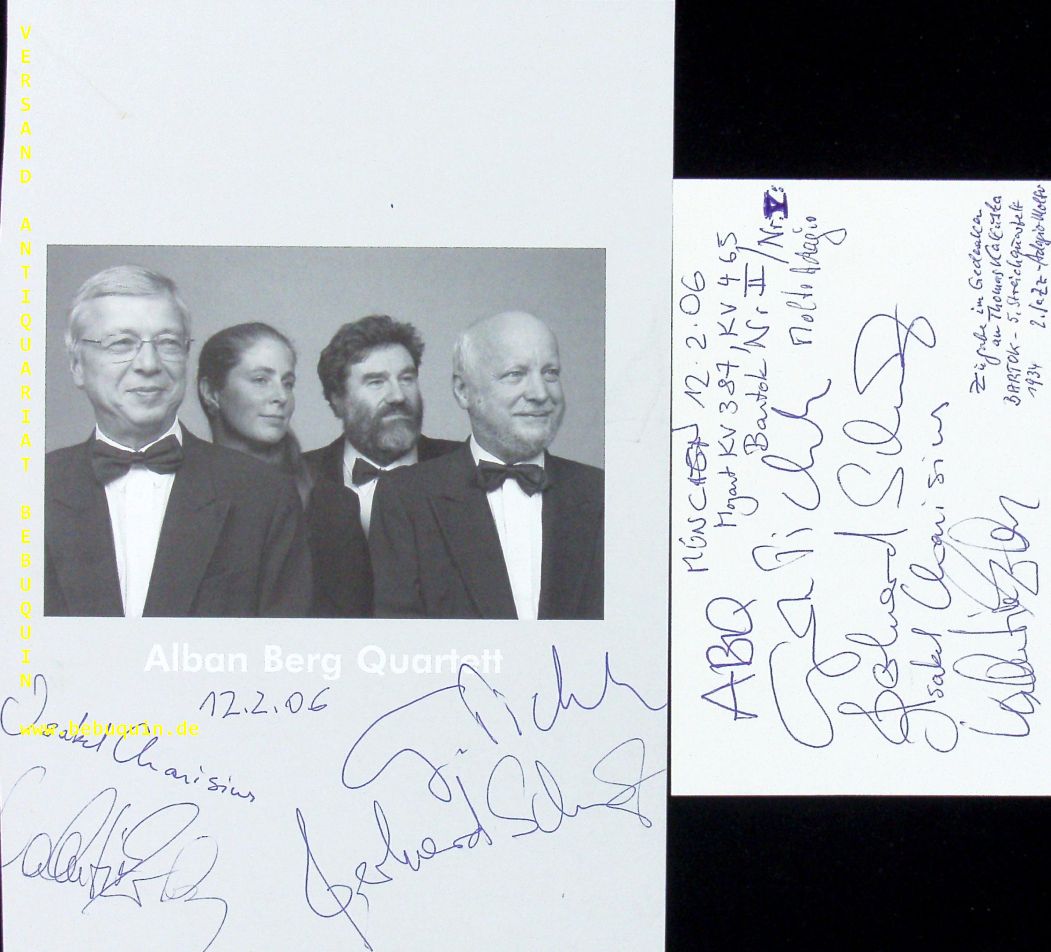 VERSAND ANTIQUARIAT BEBUQUIN
www.bebuquin.de
Alban Berg Quartett
12.2.06
Isabel Charisius
G. Pichler
Gerhard Schulz
Valentin Erben
ABQ MÜNCHEN 12.2.06
Mozart KV 387, KV 465
Bartok Nr. II / Nr. V:
Molto Adagio
G. Pichler
Gerhard Schulz
Isabel Charisius
Valentin Erben
Zugabe im Gedenken
an Thomas Kakuska
BARTOK - 5. Streichquartett
1934 2. Satz - Adagio Molto